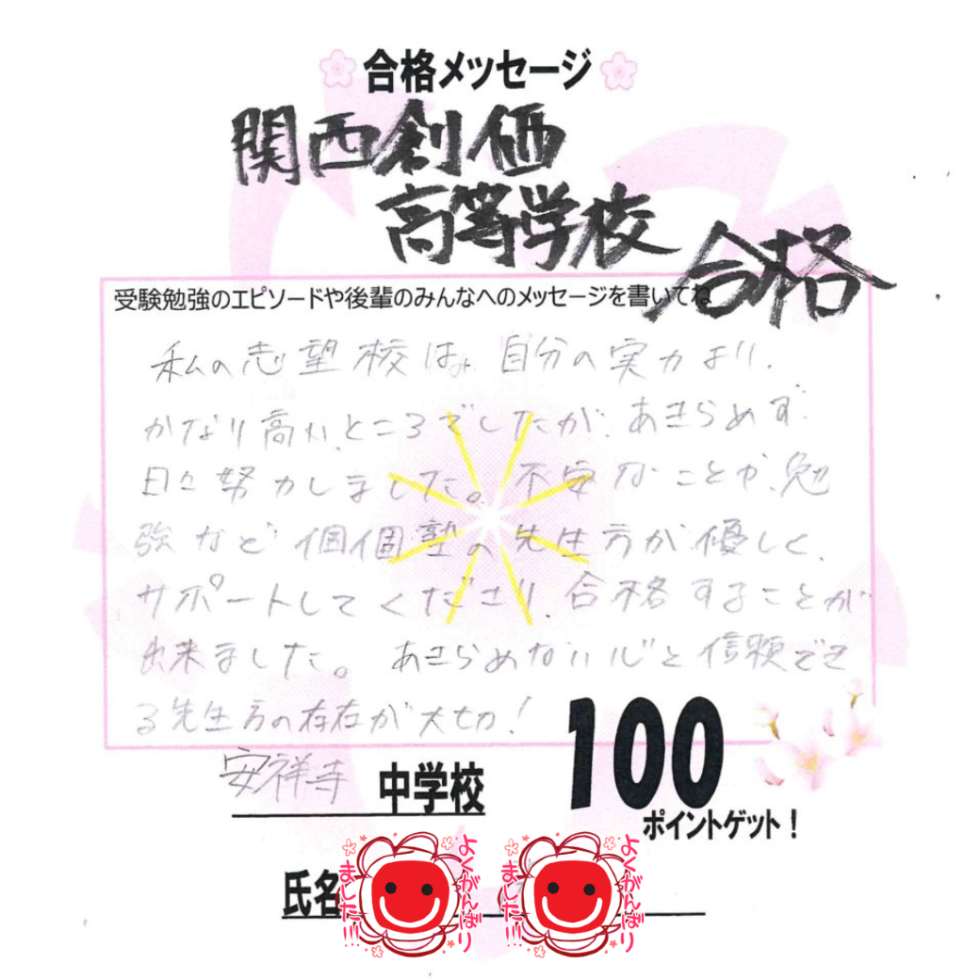 合格メッセージ
関西創価
高等学校
合格
受験勉強のエピソードや後輩のみんなへのメッセージを書いてね
私の志望校は、自分の実力より、
かなり高いところでしたが、あきらめず
日々努力しました。不安なことや、勉
強など個個塾の先生方が優しく、
サポートしてくださり、合格することが
出来ました。あきらめない心と信頼でき
る先生方の存在が大切！
安祥寺 中学校
100
ポイントゲット！
氏名
よくがんばり
ました!!!
よくがんばり
ました!!!